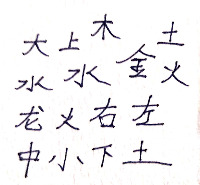 大上木金土
水水火
龙火右左
中小下土